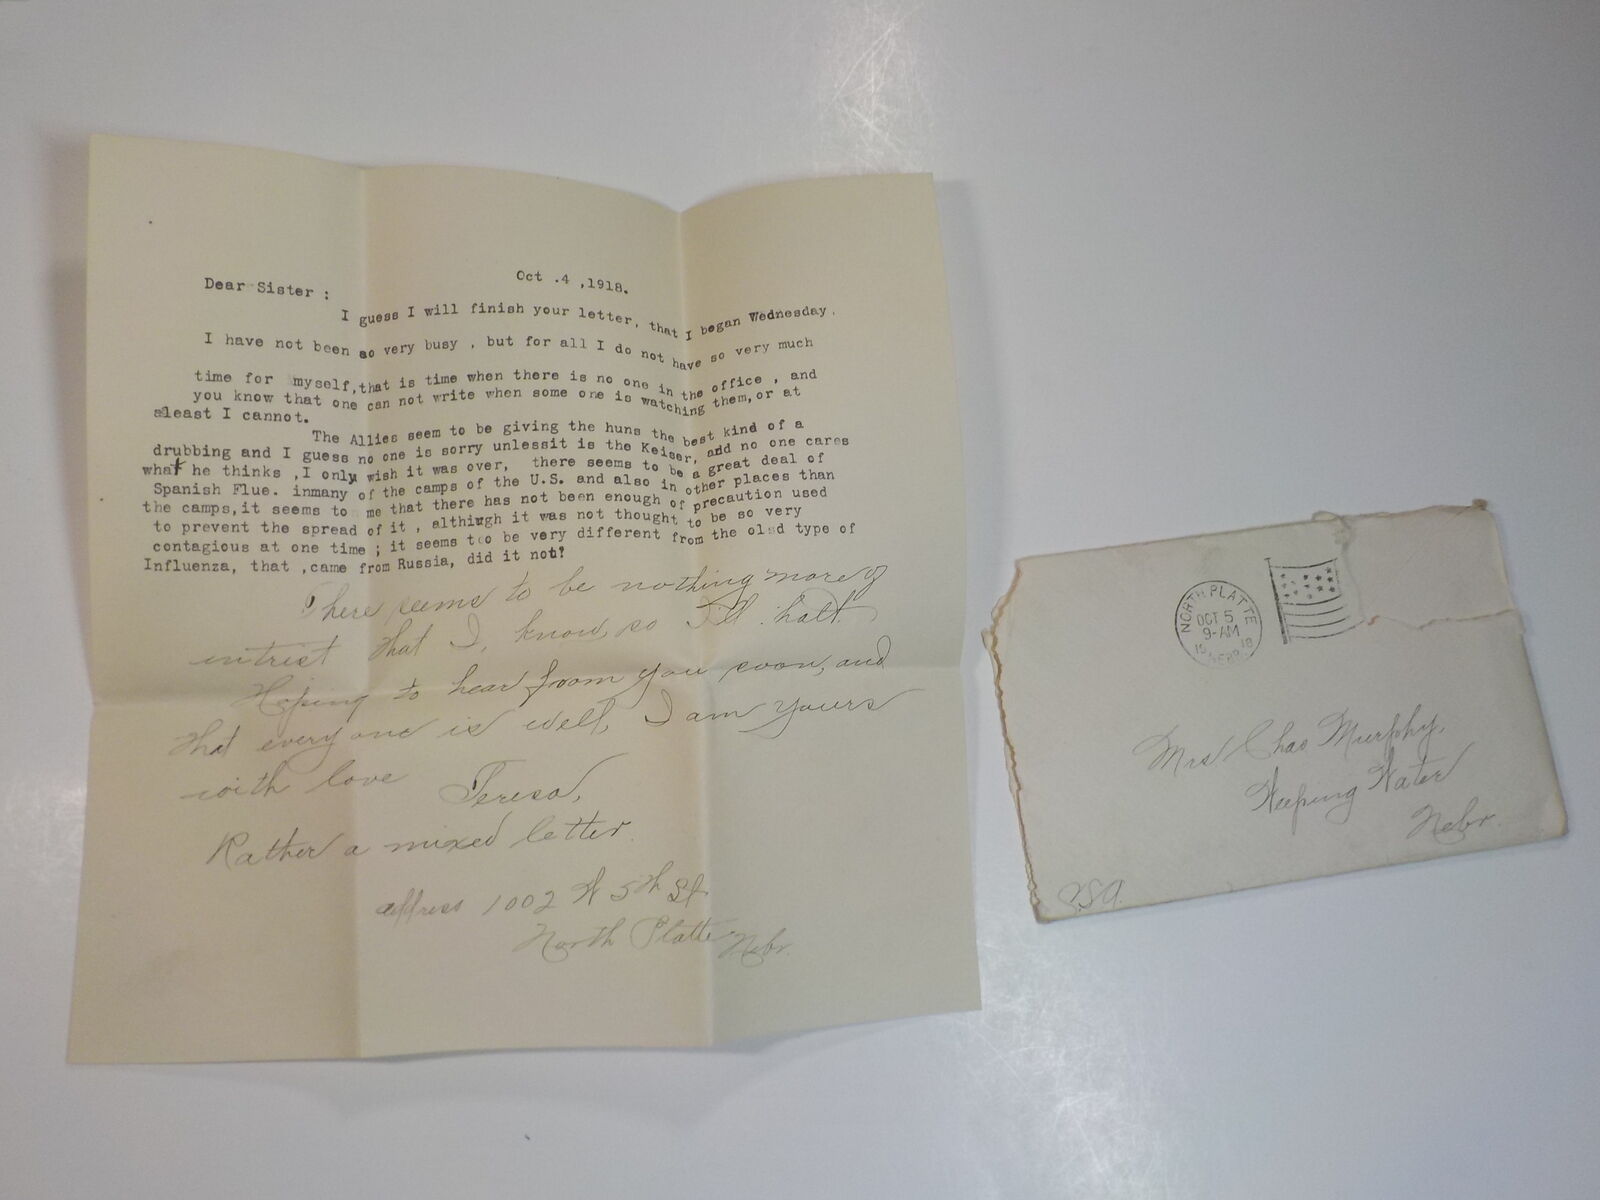 Oct .4 ,1918.
Dear Sister :
I guess I will finish your letter, that I began Wednesday.
I have not been so very busy , but for all I do not have so very much
time for myself,that is time when there is no one in the office , and
you know that one can not write when some one is watching them,or at
aleast I cannot.
The Allies seem to be giving the huns the best kind of a
drubbing and I guess no one is sorry unlessit is the Keiser, and no one cares
what he thinks ,I only wish it was over, there seems to be a great deal of
Spanish Flue. inmany of the camps of the U.S. and also in other places than
the camps,it seems to me that there has not been enough of precaution used
to prevent the spread of it , althiugh it was not thought to be so very
contagious at one time ; it seems too be very different from the olsd type of
Influenza, that ,came from Russia, did it not?
There seems to be nothing more of
intrest that I, know, so I'll halt.
Hoping to hear from you soon, and
that everyone is well, I am yours
with love Teresa,
Rather a mixed letter.
address 1002 W 5th St.
North Platte, Nebr.
NORTH PLATTE
OCT 5
9-AM
1918
NEBR.
Mrs Chas Murphy,
Weeping Water
Nebr.